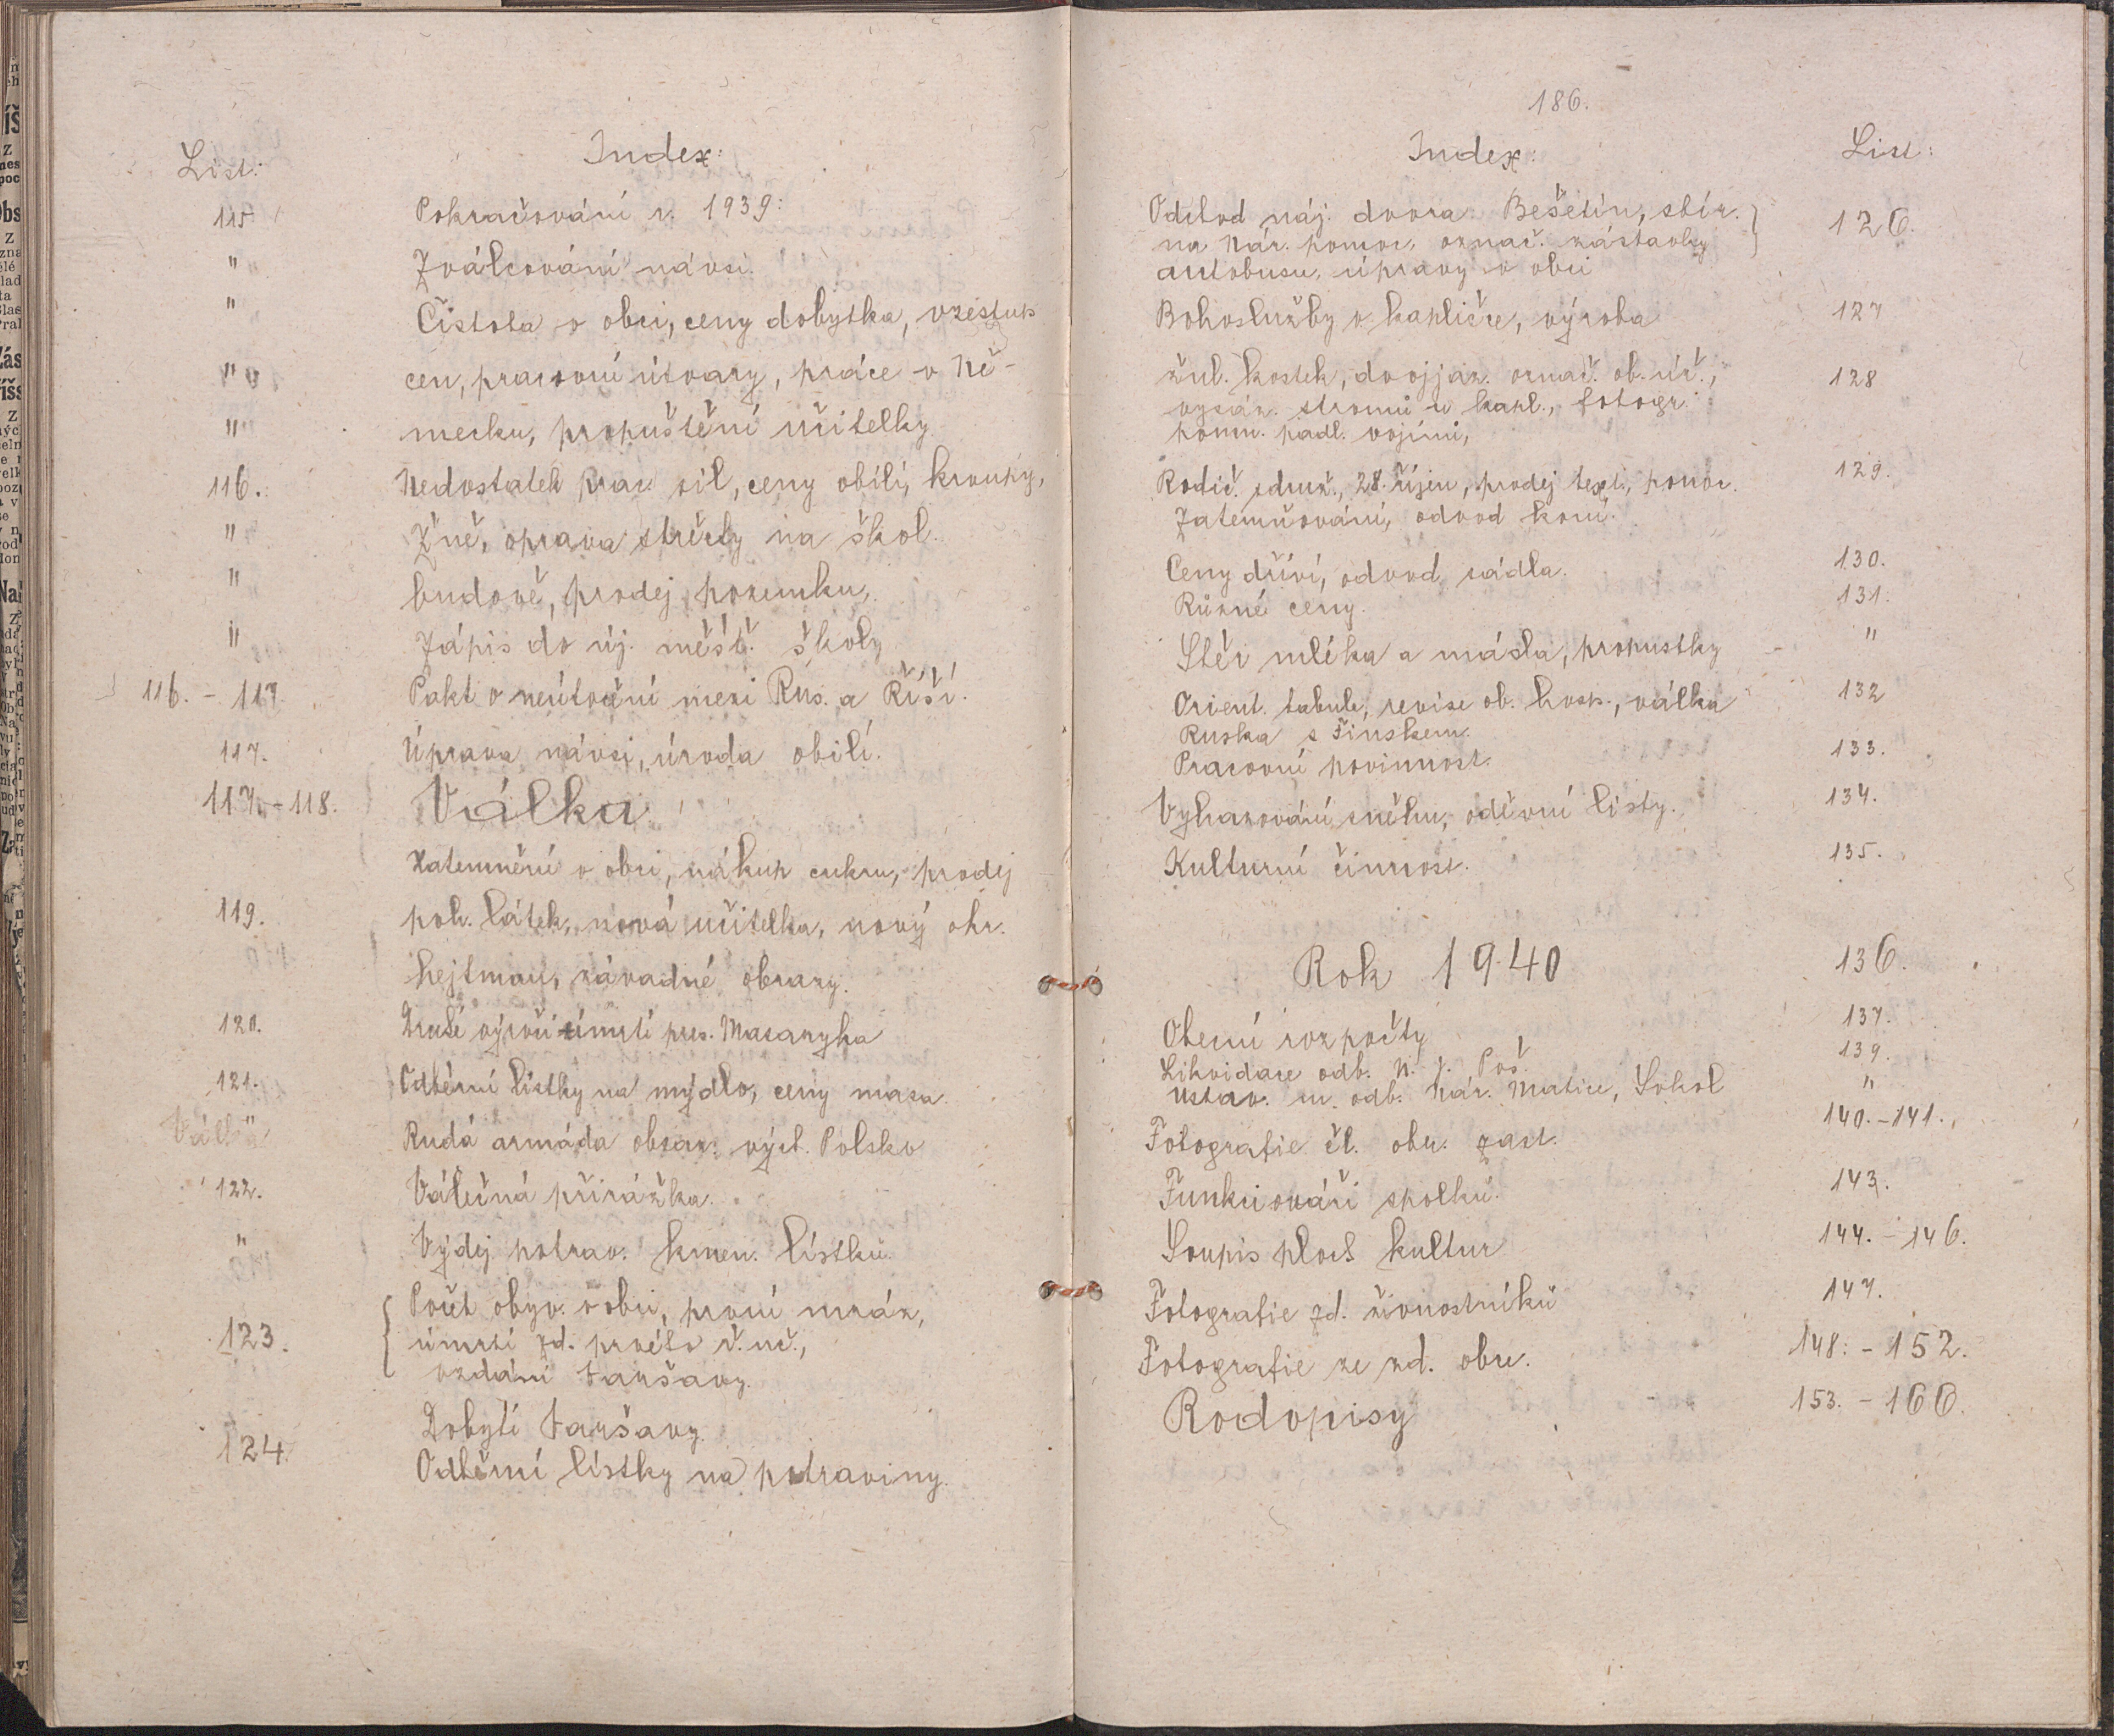 List: Index:
115. Pokračování r. 1939:
" Zválcování návsi.
" Čistota v obci, ceny dobytka, vzestup
" cen, pracovní útvary, práce v Ně-
" mecku, propuštění učitelky.
116. Nedostatek prac. sil, ceny obilí, kroupy,
" Žně, oprava střechy na škol.
" budově, prodej pozemku,
" Zápis do új. měšť. školy
116. - 117. Pakt o neútočení mezi Rus. a Říší.
117. Úprava návsi, úroda obilí.
117. - 118. Válka.
Zatemnění v obci, nákup cukru, prodej
119. poh. látek, nová učitelka, nový okr.
hejtman, závadné obrazy.
120. Druhé výročí úmrtí pres. Masaryka
121. Odběrní lístky na mýdlo, ceny masa.
" Rudá armáda obsaz. vých. Polsko
122. Válečná přirážka.
" Výdej potrav. kmen. lístků.
Počet obyv. v obci, první mráz,
123. úmrtí zd. prvého ř. uč.,
vzdání Varšavy.
Dobytí Varšavy
124. Odběrní lístky na potraviny.
186.
Index: List:
Odchod náj. dvora Bešetín, sbír. 126.
na Nár. pomoc, označ. zástavky
autobusu, úpravy v obci
Bohoslužby v kapličce, výroba 127
žul. kostek, dvojjaz. označ. ob. úř., 128
vysáz. stromů u kapl., fotogr.
pomn. padl. vojínů,
Rodič. sdruž., 28. říjen, prodej text., ponoc. 129.
Zatemňování, odvod koní.
Ceny dříví, odvod sádla. 130.
Různé ceny. 131.
Sběr mléka a másla, propustky "
Orient. tabule, revise ob. hosp., válka 132
Ruska s Finskem.
Pracovní povinnost. 133.
Vyhazování sněhu, oděvní listy. 134.
Kulturní činnost. 135.
Rok 1940 136.
Obecní rozpočty 137.
Likvidace odb. N. j. Poš. 139.
Ustav. m. odb. Nár. Matice, Sokol "
Fotografie čl. obec. zast. 140. - 141.
Funkcionáři spolků. 143.
Soupis ploch kultur 144. - 146.
Fotografie zd. živnostníků 147.
Fotografie ze zd. obce. 148. - 152.
Rodopisy 153. - 166.